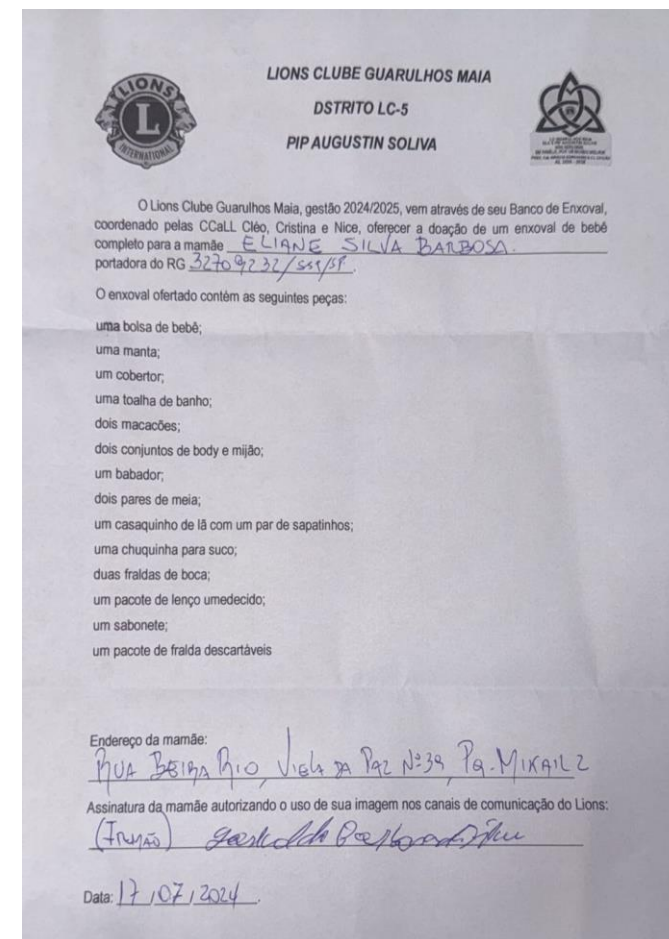 LIONS CLUBE GUARULHOS MAIA
DSTRITO LC-5
PIP AUGUSTIN SOLIVA
LIONS
L
INTERNATIONAL
O Lions Clube Guarulhos Maia, gestão 2024/2025, vem através de seu Banco de Enxoval,
coordenado pelas CCaLL Cléo, Cristina e Nice, oferecer a doação de um enxoval de bebê
completo para a mamãe ELIANE SILVA BARBOSA.
portadora do RG 32709232/SSP/SP.
O enxoval ofertado contém as seguintes peças:
uma bolsa de bebê;
uma manta;
um cobertor;
uma toalha de banho;
dois macacões;
dois conjuntos de body e mijão;
um babador;
dois pares de meia;
um casaquinho de lã com um par de sapatinhos;
uma chuquinha para suco;
duas fraldas de boca;
um pacote de lenço umedecido;
um sabonete;
um pacote de fralda descartáveis
Endereço da mamãe:
RUA BEIRA RIO, VIELA DA PAZ Nº 39, PQ. MIKAIL 2
Assinatura da mamãe autorizando o uso de sua imagem nos canais de comunicação do Lions:
(IRMÃO)
Data: 17/07/2024.